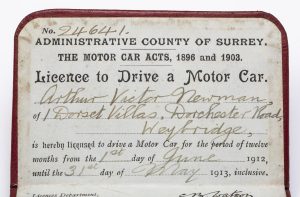 No. 24641.
ADMINISTRATIVE COUNTY OF SURREY.
THE MOTOR CAR ACTS, 1896 and 1903.
Licence to Drive a Motor Car.
Arthur Victor Newman,
of 1 Dorset Villas, Dorchester Road,
Weybridge,
is hereby licensed to drive a Motor Car for the period of twelve
months from the 1st day of June 1912,
until the 31st day of May 1913, inclusive.
Licence Department,
Watson